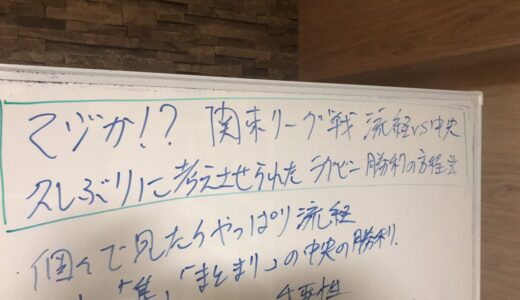 マジか!? 関東リーグ戦 流経vs中央
久しぶりに考えさせられた ラグビー勝利の方程式
・個々で見たらやっぱり流経
「集」「まとまり」の中央の勝利.
性